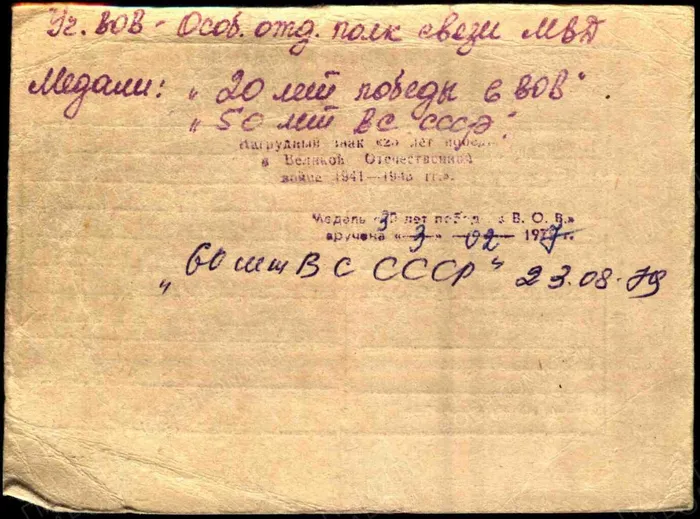 Уч. ВОВ - Особ. отд. полк связи МВД
Медали: „20 лет победы в ВОВ".
„50 лет ВС СССР".
Нагрудный знак «25 лет победы
в Великой Отечественной
войне 1941—1945 гг».
Медаль «30 лет побед в В. О. В.»
вручена «3» 02 1977 г.
„60 лет ВС СССР" 23.08.79